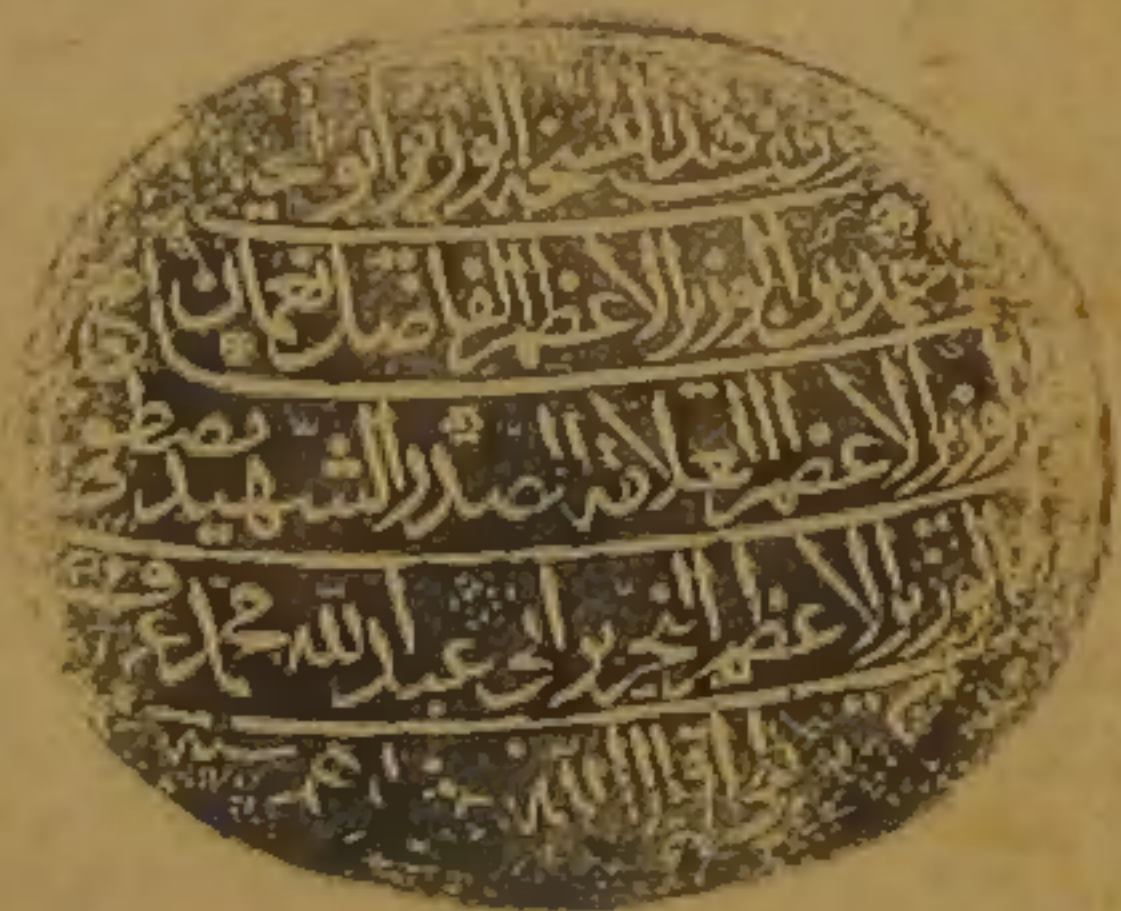 وقف هذه النسخة الوزير ابو الخير
احمد بن الوزير الاعظم الفاضل نعمان بن
الوزير الاعظم العلامة الصدر الشهيد مصطفى بن
الوزير الاعظم النحرير ابي عبد الله محمد عرف
اقال الله عثارهم سنه